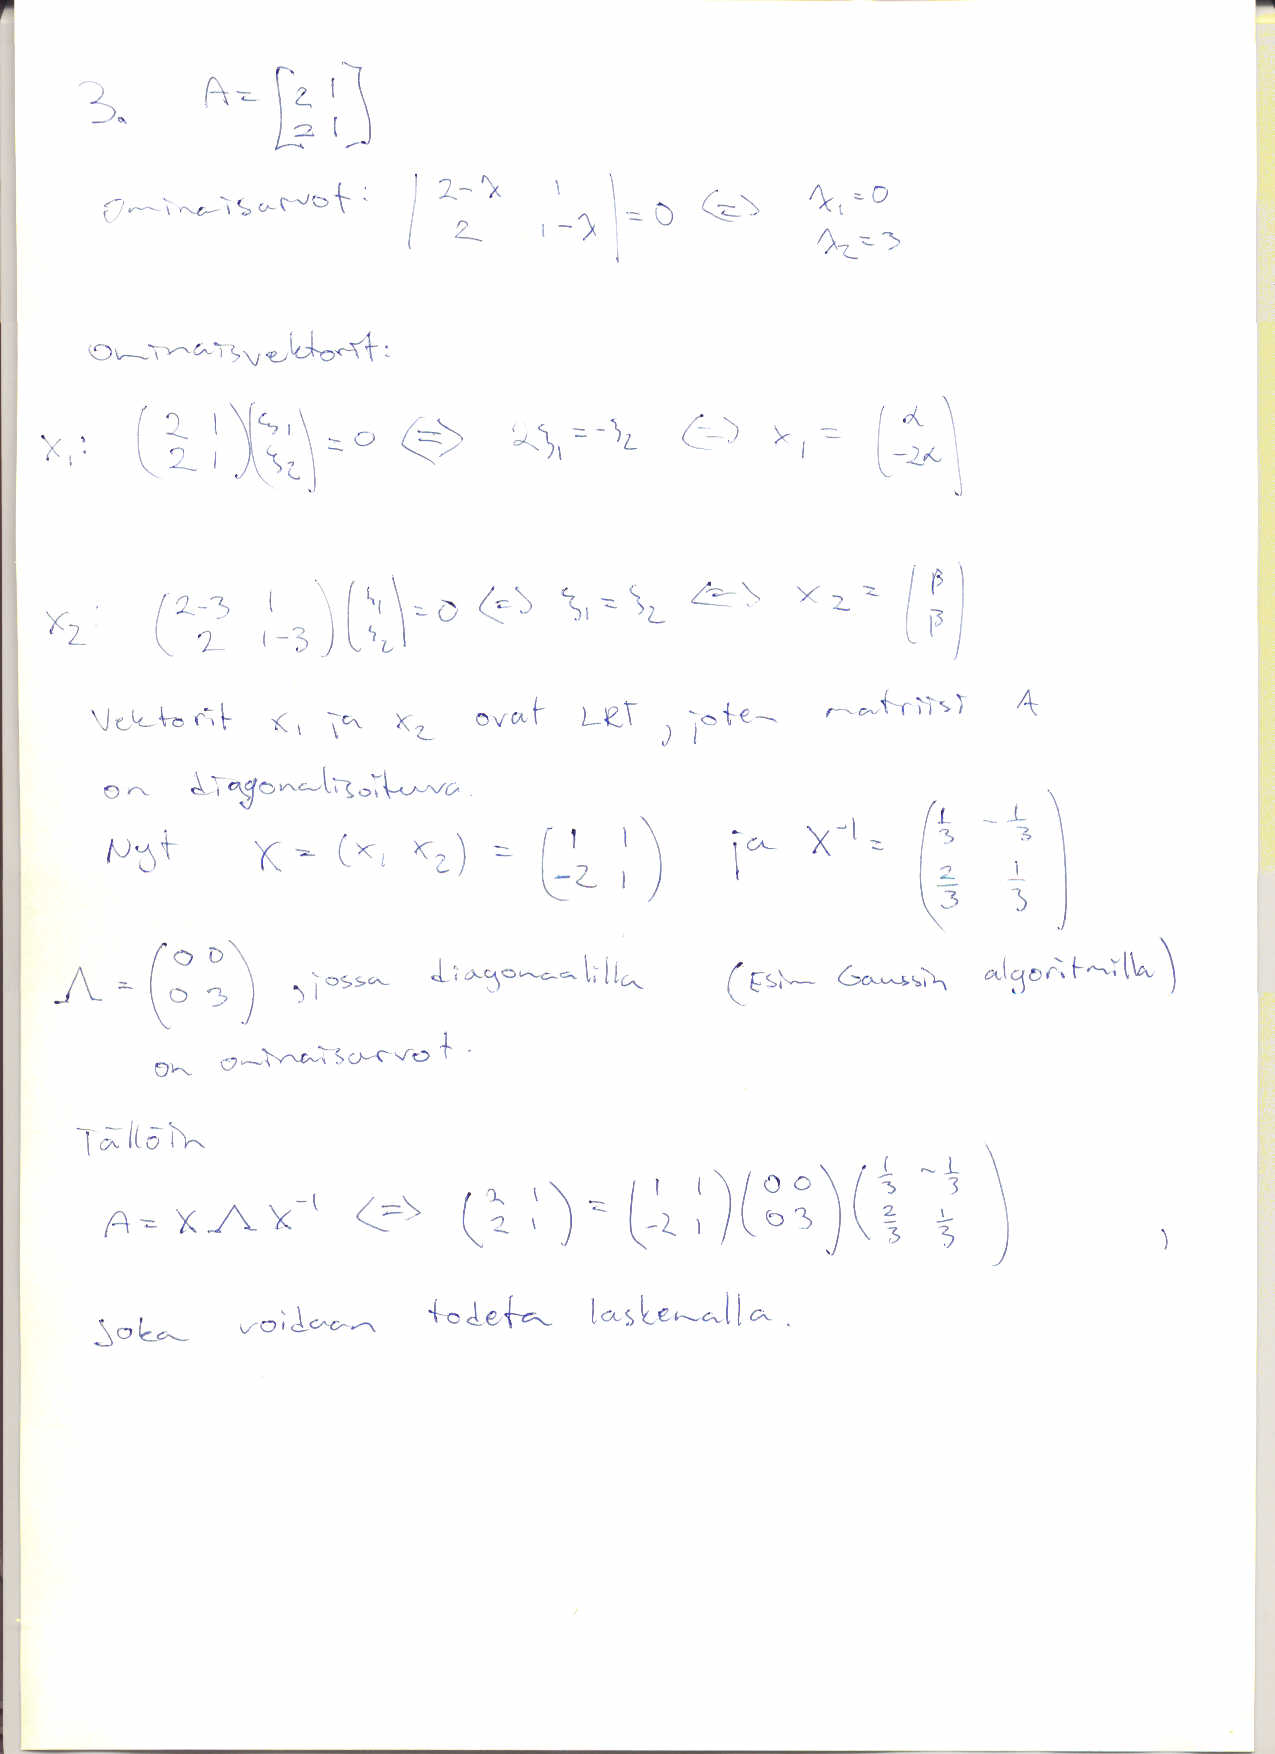 3. A = [2 1
2 1]
Ominaisarvot: |2-λ 1
2 1-λ| = 0 <=> λ₁ = 0
λ₂ = 3
Ominaisvektorit:
x₁: (2 1
2 1)(ξ₁
ξ₂) = 0 <=> 2ξ₁ = -ξ₂ <=> x₁ = (α
-2α)
x₂: (2-3 1
2 1-3)(ξ₁
ξ₂) = 0 <=> ξ₁ = ξ₂ <=> x₂ = (β
β)
Vektorit x₁ ja x₂ ovat LRT, joten matriisi A
on diagonalisoituva.
Nyt X = (x₁ x₂) = (1 1
-2 1) ja X⁻¹ = (1/3 -1/3
2/3 1/3)
Λ = (0 0
0 3), jossa diagonaalilla (Esim Gaussin algoritmilla)
on ominaisarvot.
Tällöin
A = XΛX⁻¹ <=> (2 1
2 1) = (1 1
-2 1)(0 0
0 3)(1/3 -1/3
2/3 1/3),
joka voidaan todeta laskemalla.